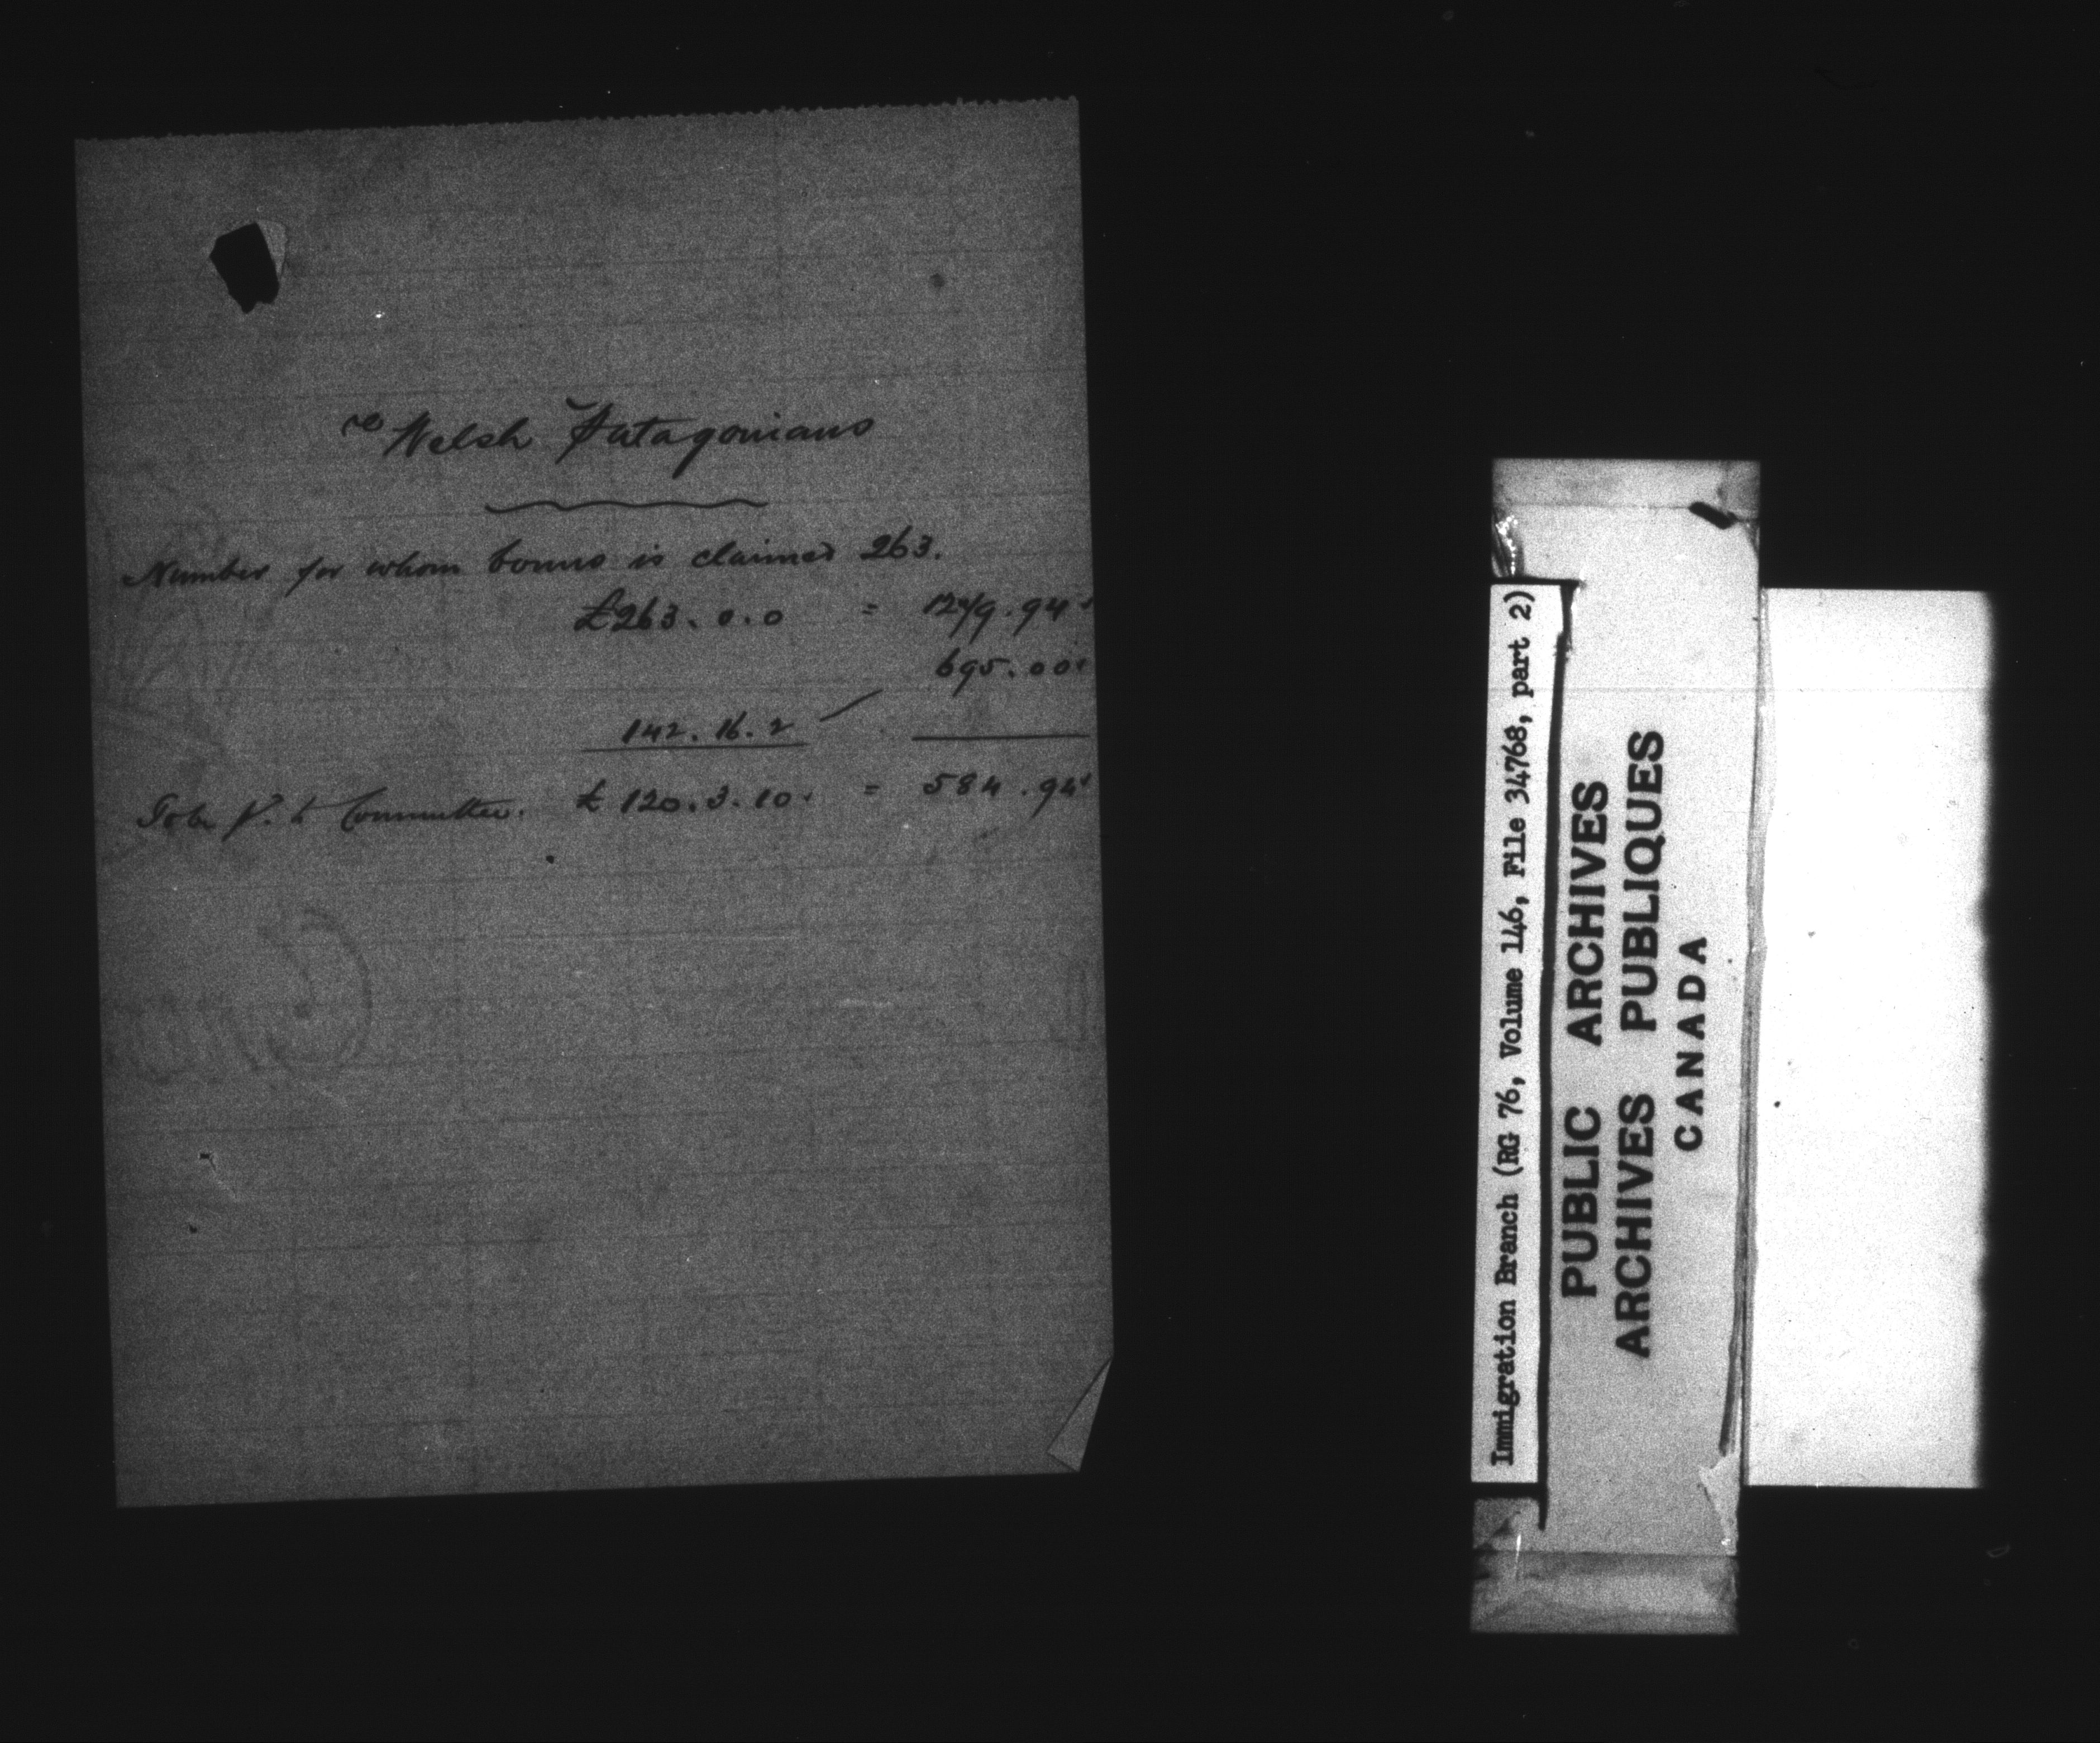 re Welsh Patagonians
Number for whom bonus is claimed 263.
£263.0.0 = 1279.94
695.00
142.16.2
To be P. to Committee. £120.3.10. = 584.94
Immigration Branch (RG 76, Volume 146, File 34768, part 2)
PUBLIC ARCHIVES
ARCHIVES PUBLIQUES
CANADA